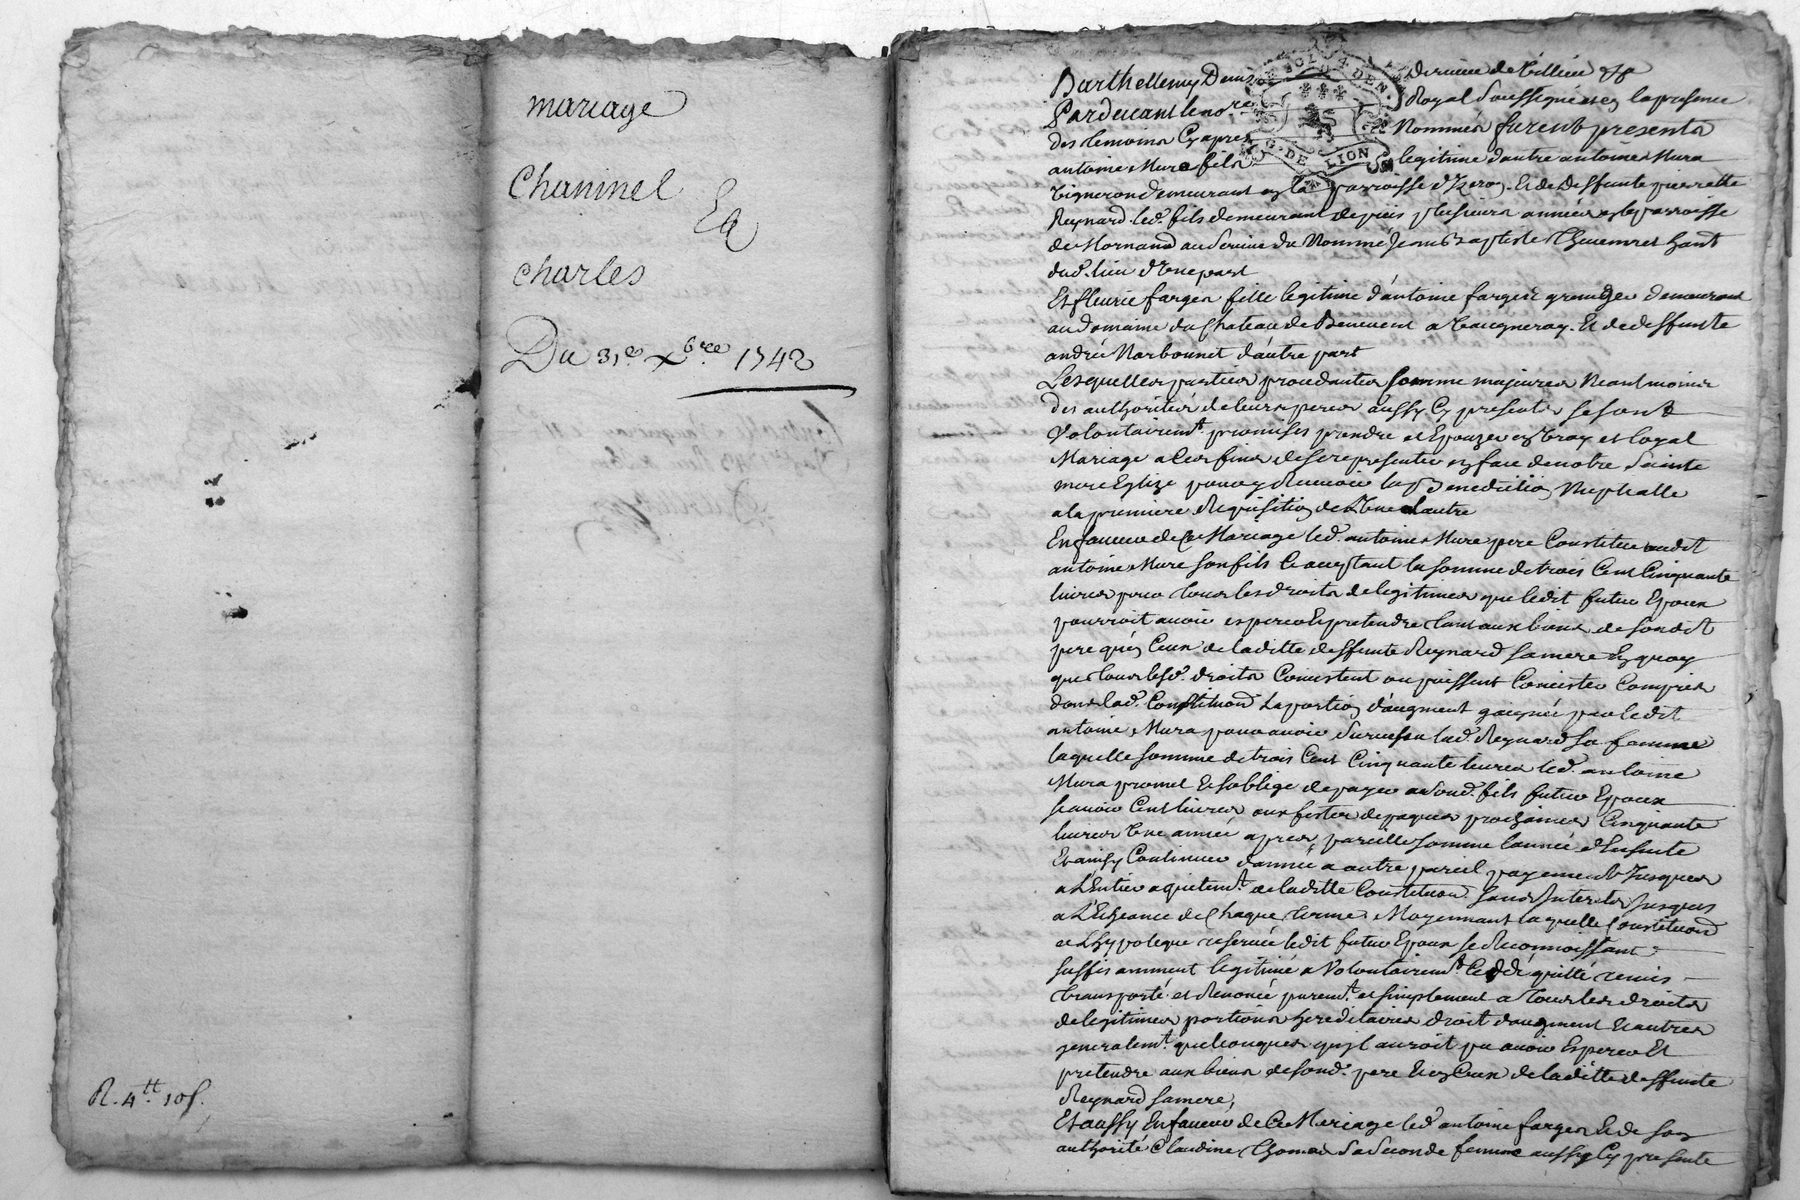 mariage
Chaninel
Et
Charles
Du 31.e Xbre 1743
R. 4.tt 10s.
Barthellemy Denis Derieux de Villieu
Pardevant le no.re Royal Soussigné et en la presence
des temoins Cy apres Nommés furent presents
antoine Mure fils legitime d'autre antoine Mura
Vigneron demeurant en la parroisse d'Izeron. Et de Deffunte pierrette
Reynard. led. fils demeurant depuis plusieurs années en la parroisse
de Mornand au Service du Nommé Jean Baptiste
dud. lieu d'Une part
Et fleurie farges fille legitime d'antoine farges granger demeurant
au domaine du Chateau de Benevent a Vaugneray. Et de deffunte
andrée Narbonnet d'autre part
Lesquelles parties procedantes comme majeures Neantmoins
des authorités de leurs peres aussy Cy presents se sont
Volontairemt. promises prendre et Epouzer en Vray et loyal
Mariage a Ces fins de se representer en face de notre Sainte
mere Eglize pour y Recevoir la Benediction Nuptialle
a la premiere Requisition de l'Une l'autre
En faveur de Ce Mariage led. antoine Mure pere Constitue audit
antoine Mure son fils Ce acceptant la somme de trois Cent Cinquante
livres pour tous les droits de legitimes que ledit futur Epoux
pourroit avoir esperer et pretendre tant aux biens de sondit
pere qu'en Ceux de laditte deffunte Reynard sa mere En quoy
que tous lesd. droits Consistent ou puissent Consister Compris
dans lad. Constituon. La portion d'augment gaignée par ledit
antoine Mura pour avoir Survescu lad. Reynard sa femme
laquelle somme de trois Cent Cinquante livres led. antoine
Mura promet Et soblige de payer a sond. fils futur Epoux
scavoir Cent livres aux festes de paques prochaines Cinquante
livres Une année apres pareille somme l'année d'Ensuite
Et ainsy Continuer d'année a autre pareil payement Jusques
a L'Entier aquitemt. de laditte Constituon. sans Interets Jusques
a L'Echeance de Chaque terme. Moyennant laquelle Constituon.
et L'hypoteque reservée ledit futur Epoux se Reconnoissant
suffisamment legitimé a Volontairemt. Ceddé quitté remis
transporté et Renoncé puremt. et simplement a tous les droits
de legitimes portions hereditaires droit d'augment Et autres
generalemt. quelconques qu'il auroit pu avoir Esperer Et
pretendre aux biens de sond. pere Et en Ceux de laditte deffunte
Reynard sa mere,
Et aussy En faveur de Ce Mariage led. antoine farges Et de son
authorité Claudine Thomas Sa Seconde femme aussy Cy presente